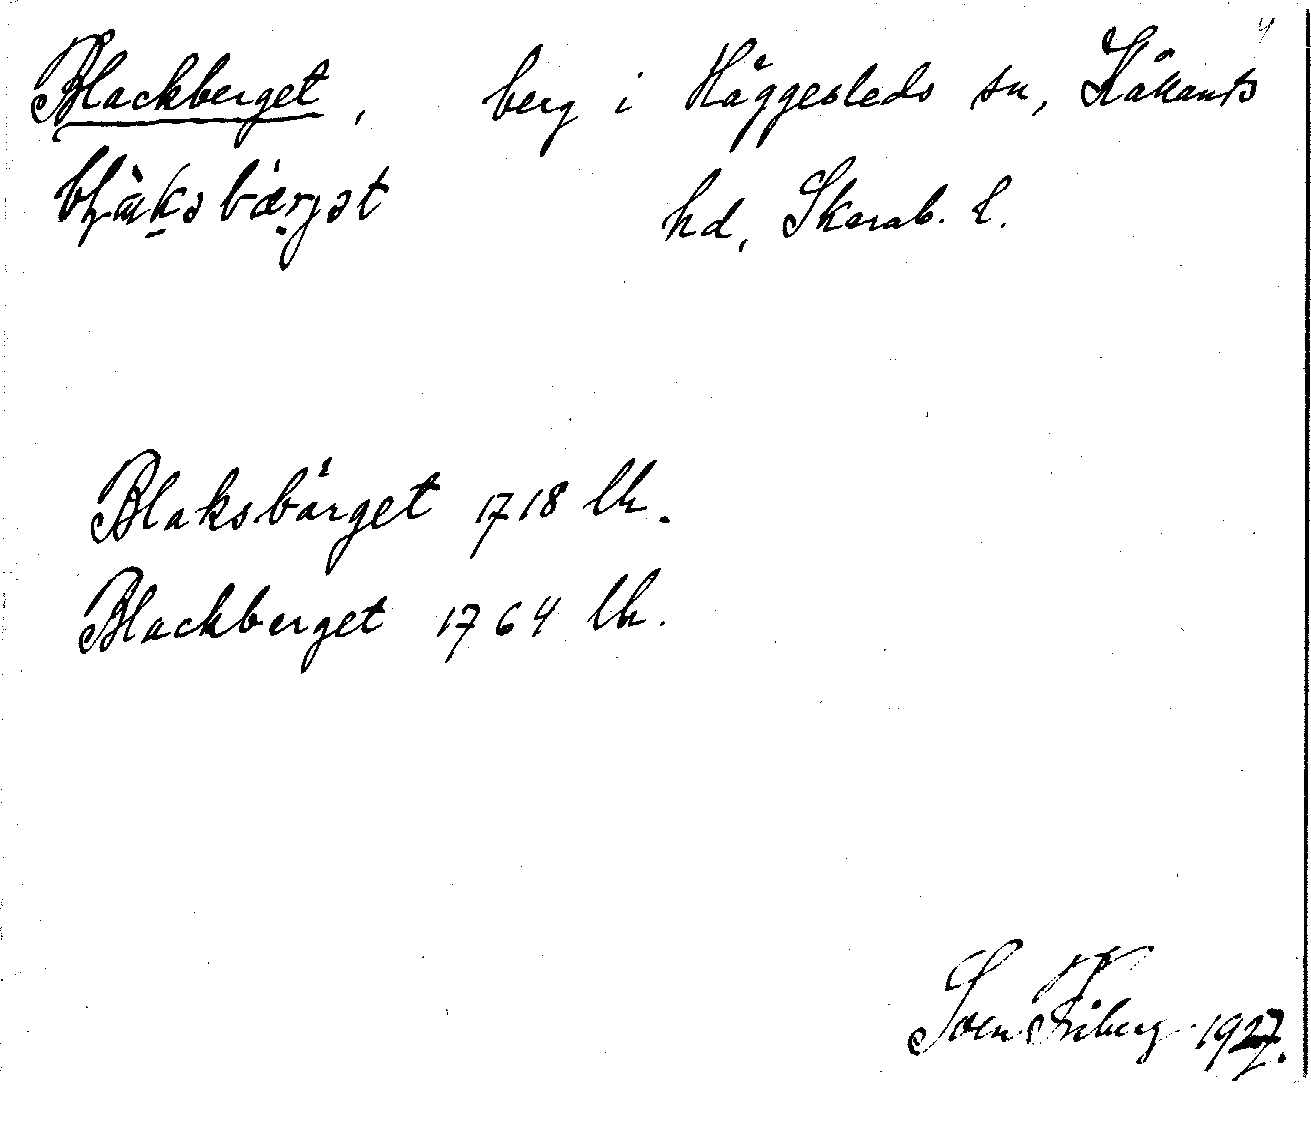 Blackberget, berg i Häggesleds sn, Kållands
hd, Skarab. l.
Blaksbärget 1718 lk.
Blackberget 1764 lk.
Sven Friberg 1927.